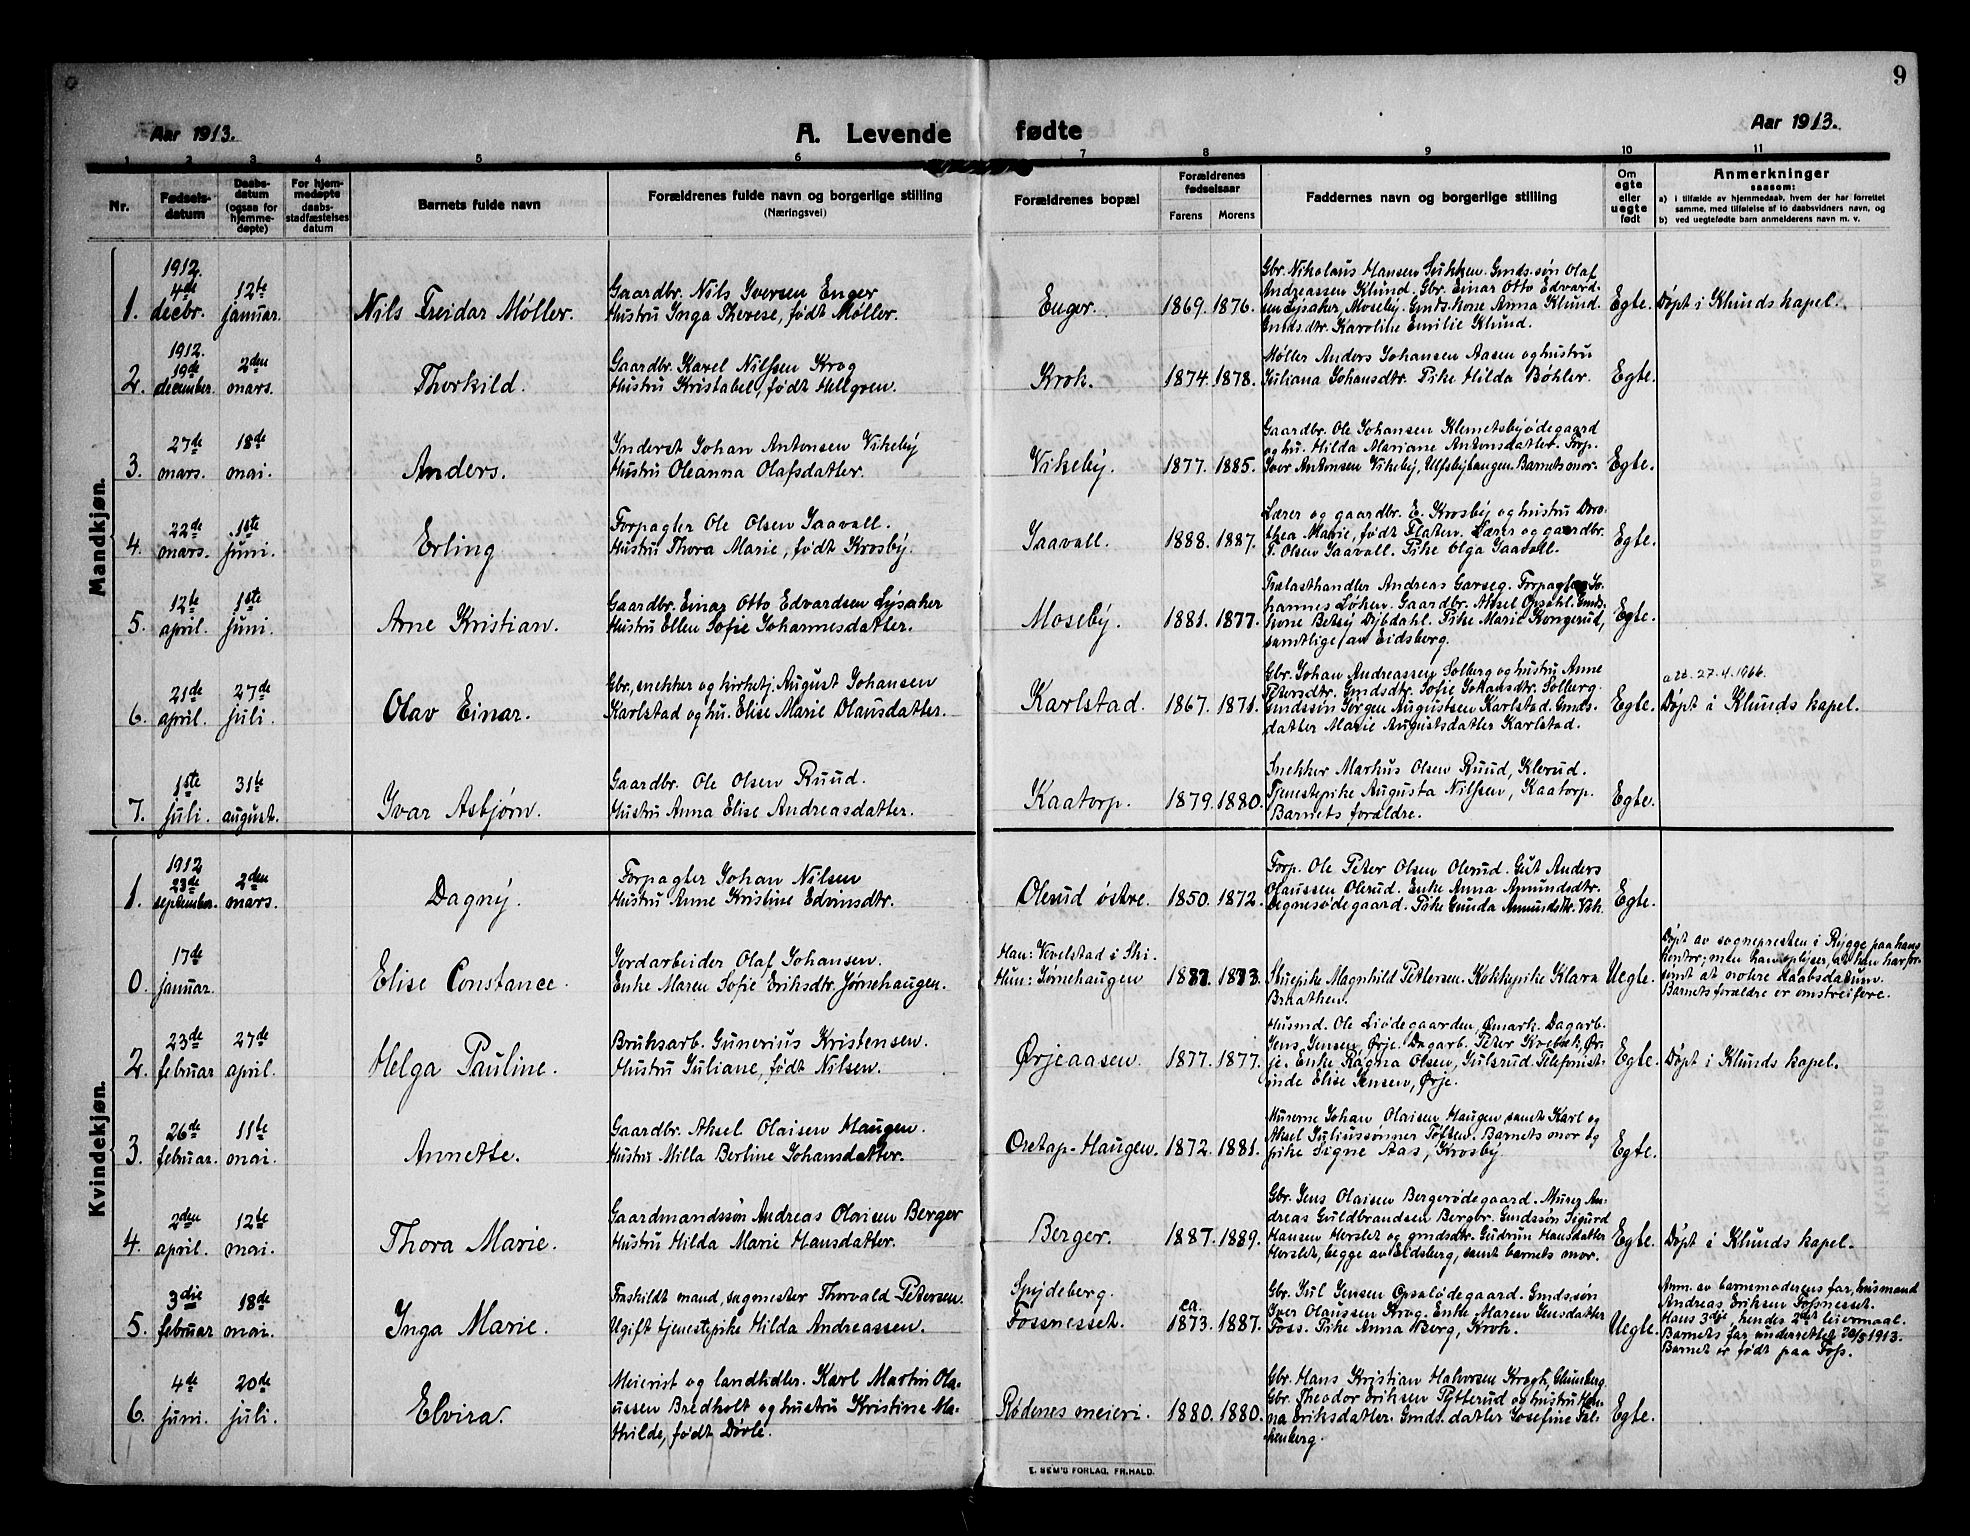 9
Aar 1913.
A. Levende fødte
Aar 1913.
1 2 3 4 5 6 7 8 9 10 11
Nr.
Fødsels-
datum
Daabs-
datum
(ogsaa for
hjemme-
døpte)
For hjem-
medøpte
daabs-
stadfæstelses
datum
Barnets fulde navn
Forældrenes fulde navn og borgerlige stilling
(Næringsvei)
Forældrenes bopæl
Forældrenes
fødselsaar
Farens Morens
Faddernes navn og borgerlige stilling
Om
egte
eller
uegte
født
Anmerkninger
saasom:
a) i tilfælde av hjemmedaab, hvem der har forrettet
samme, med tilføielse af to daabsvidners navn, og
b) ved uegtefødte barn anmelderens navn m. v.
Mandkjøn.
1.
1912.
4de
decbr.
12te
januar.
Nils Freidar Møller.
Gaardbr. Nils Iversen Enger
Hustru Inga Therese, født Møller.
Enger.
1869. 1876.
Gbr. Nikolaus Hansen Sukken. Gmds.søn Olaf
Andreassen Klund. Gbr. Einar Otto Edvard-
sen Lysaker, Moseby. Gmds.kone Anna Klund.
Gmdsdtr. Karoline Emilie Klund.
Egte.
Døpt i Klunds kapel.
2.
1912.
19de
december.
2den
mars.
Thorkild.
Gaardbr. Karel Nilssen Krog
Hustru Kristabel, født Hellgren.
Krok.
1874. 1878.
Møller Anders Johansen Aasen og hustru
Juliana Johansdtr. Pike Hilda Bøhler.
Egte.
3.
27de
mars.
18de
mai.
Anders.
Inderst Johan Antonsen Vikeby
Hustru Oleanna Olafsdatter.
Vikeby.
1877. 1885.
Gaardbr. Ole Johansen Klemetsbyødegaard
og hu. Hilda Mariane Antonsdatter. Forp.
Iver Antonsen Vikeby, Ulfsbytangen. Barnets mor.
Egte.
4.
22de
mars.
1ste
juni.
Erling
Forpagter Ole Olsen Jaavall.
Hustru Thora Marie, født Krosby.
Jaavall.
1888. 1887.
Lærer og gaardbr. E. Krosby og hustru Doro-
thea Marie, født Flaten. Lærer og gaardbr.
T. Olsen Jaavall. Pike Olga Jaavall.
Egte.
5.
12te
april.
1ste
juni.
Arne Kristian.
Gaardbr. Einar Otto Edvardsen Lysaker
Hustru Ellen Sofie Johannesdatter.
Moseby.
1881. 1877.
Trælasthandler Andreas Garseg. Forpagter Jo-
hannes Løken. Gaardbr. Aksel Opsahl. Gmds-
kone Betsy Dybdahl. Pike Marie Kongerud,
samtlige av Eidsberg.
Egte.
6.
21de
april.
27de
juli.
Olav Einar.
Gbr., snekker og kirketj. August Johansen
Karlstad og hu. Elise Marie Olausdatter.
Karlstad.
1867. 1871.
Gbr. Johan Andreassen Solberg og hustru Anne
Petersdtr. Gmdsdtr. Sofie Johansdtr. Solberg.
Gmdssøn Jørgen Augustsen Karlstad. Gmds-
datter Marie Augustsdatter Karlstad.
Egte.
att. 27.4.1966.
Døpt i Klunds kapel.
7.
1ste
juli.
31te
august.
Ivar Asbjørn.
Gaardbr. Ole Olsen Ruud.
Hustru Anna Elise Andreasdatter.
Kaatorp.
1879. 1880.
Snekker Markus Olsen Ruud, Klerud.
Tjenestepike Augusta Nilssen, Kaatorp.
Barnets forældre.
Egte.
Kvindekjøn.
1.
1912
23de
september.
2den
mars.
Dagny.
Forpagter Johan Nilsen
Hustru Anne Kristine Edvinsdtr.
Olerud østre.
1850. 1872.
Forp. Ole Peter Olsen Olerud. Gut Anders
Olaussen Olerud. Enke Anna Amundsdtr.
Degnesødegaard. Pike Gunda Amundsdtr. Vik.
Egte.
0.
17de
januar.
Elise Constance.
Jordarbeider Olaf Johansen.
Enke Maren Sofie Eriksdtr. Jørnehaugen.
Han: Vevelstad i Ski.
Hun: Jørnehaugen
1887. 1873.
Stuepike Magnhild Pettersen. Kokkepike Klara
Brkathen.
Uegte.
Døpt av sognepresten i Rygge paa hans
kontor; men han oplyser, at han har for-
sømt at notere daabsdatum.
Barnets forældre er omstreifere.
2.
23de
februar
27de
april.
Helga Pauline.
Bruksarb. Gunerius Kristensen.
Hustru Juliane, født Nilsen.
Ørjeaasen.
1877. 1877.
Husmd. Ole Liødegaarden, Ømark. Dagarb.
Jens Jensen, Ørje. Dagarb. Peter Kvebæk, Ør-
je. Enke Ragna Olsen, Gulsrud. Telefonist-
inde Elise Jensen, Ørje.
Egte.
Døpt i Klunds kapel.
3.
26de
februar.
11te
mai.
Annette.
Gaardbr. Aksel Olaisen Haugen.
Hustru Milla Bertine Johansdatter.
Øretap-Haugen.
1872. 1881.
Murerne Johan Olaisen Haugen samt Karl og
Aksel Juliussønner Toften. Barnets mor og
pike Signe Aas, Krosby
Egte.
4.
2den
april.
12te
mai.
Thora Marie.
Gaardmandssøn Andreas Olaisen Berger
Hustru Hilda Marie Hansdatter.
Berger.
1887. 1889.
Gbr. Jens Olaisen Bergerødegaard. Murer An-
dreas Guldbrandsen Bergbr. Gmdssøn Sigurd
Hansen Herslet og gmdsdtr. Gudrun Hansdatter
Herslet, begge av Eidsberg, samt barnets mor.
Egte.
Døpt i Klunds kapel.
5.
3die
februar
18de
mai.
Inga Marie.
Fraskildt mand, sagmester Thorvald Petersen.
Ugift tjenestepike Hilda Andreassen.
Spydeberg.
Fossnesset.
ca.
1873. 1887.
Gbr. Jul Jensen Opsalødegaard. Gmds.søn
Iver Olaussen Krog. Enke Maren Jensdatter
Foss. Pike Anna Norg, Krok.
Uegte.
Anm. av barnemoderens far, husmand
Andreas Eriksen Fossnesset.
Hans 3die, hendes 2det leiermaal.
Barnets far underrettet 20/5 1913.
Barnet er født paa Foss.
6.
4de
juni.
20de
juli.
Elvira.
Meierist og landhdler. Karl Martin Ola-
ussen Bredholt og hustru Kristine Ma-
thilde, født Dørle.
Rødenes meieri.
1880. 1880.
Gbr. Hans Kristian Halvorsen Krogh, Glumberg
Gbr. Theodor Eriksen Tytterud og hustru Han-
na Eriksdatter. Gmds.datter Josefine Fal-
kenberg.
Egte.
E. SEM'S FORLAG, FR.HALD.